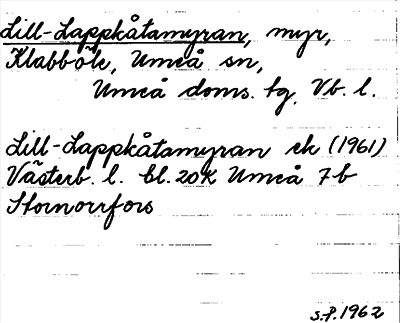 Lill-Lappkåtamyran, myr,
Klabböle, Umeå sn,
Umeå doms. tg, Vb. l.
Lill-Lappkåtamyran ek (1961)
Västerb. l. bl. 20K Umeå 7b
Stornorrfors
S.P. 1962